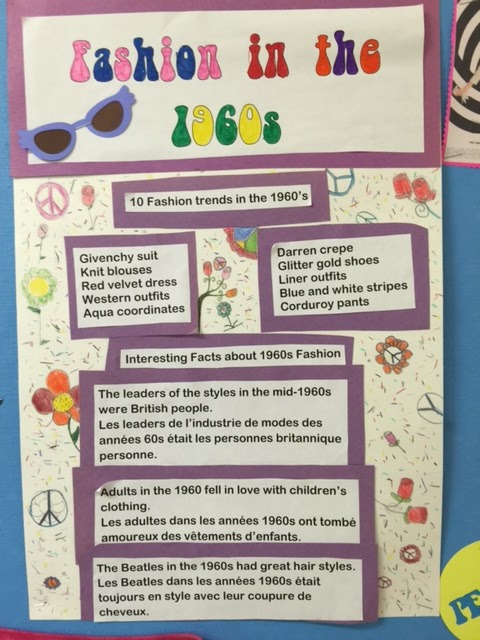 Fashion in the
1960s
10 Fashion trends in the 1960's
Givenchy suit
Knit blouses
Red velvet dress
Western outfits
Aqua coordinates
Darren crepe
Glitter gold shoes
Liner outfits
Blue and white stripes
Corduroy pants
Interesting Facts about 1960s Fashion
The leaders of the styles in the mid-1960s
were British people.
Les leaders de l'industrie de modes des
années 60s était les personnes britannique
personne.
Adults in the 1960 fell in love with children's
clothing.
Les adultes dans les années 1960s ont tombé
amoureux des vêtements d'enfants.
The Beatles in the 1960s had great hair styles.
Les Beatles dans les années 1960s était
toujours en style avec leur coupure de
cheveux.